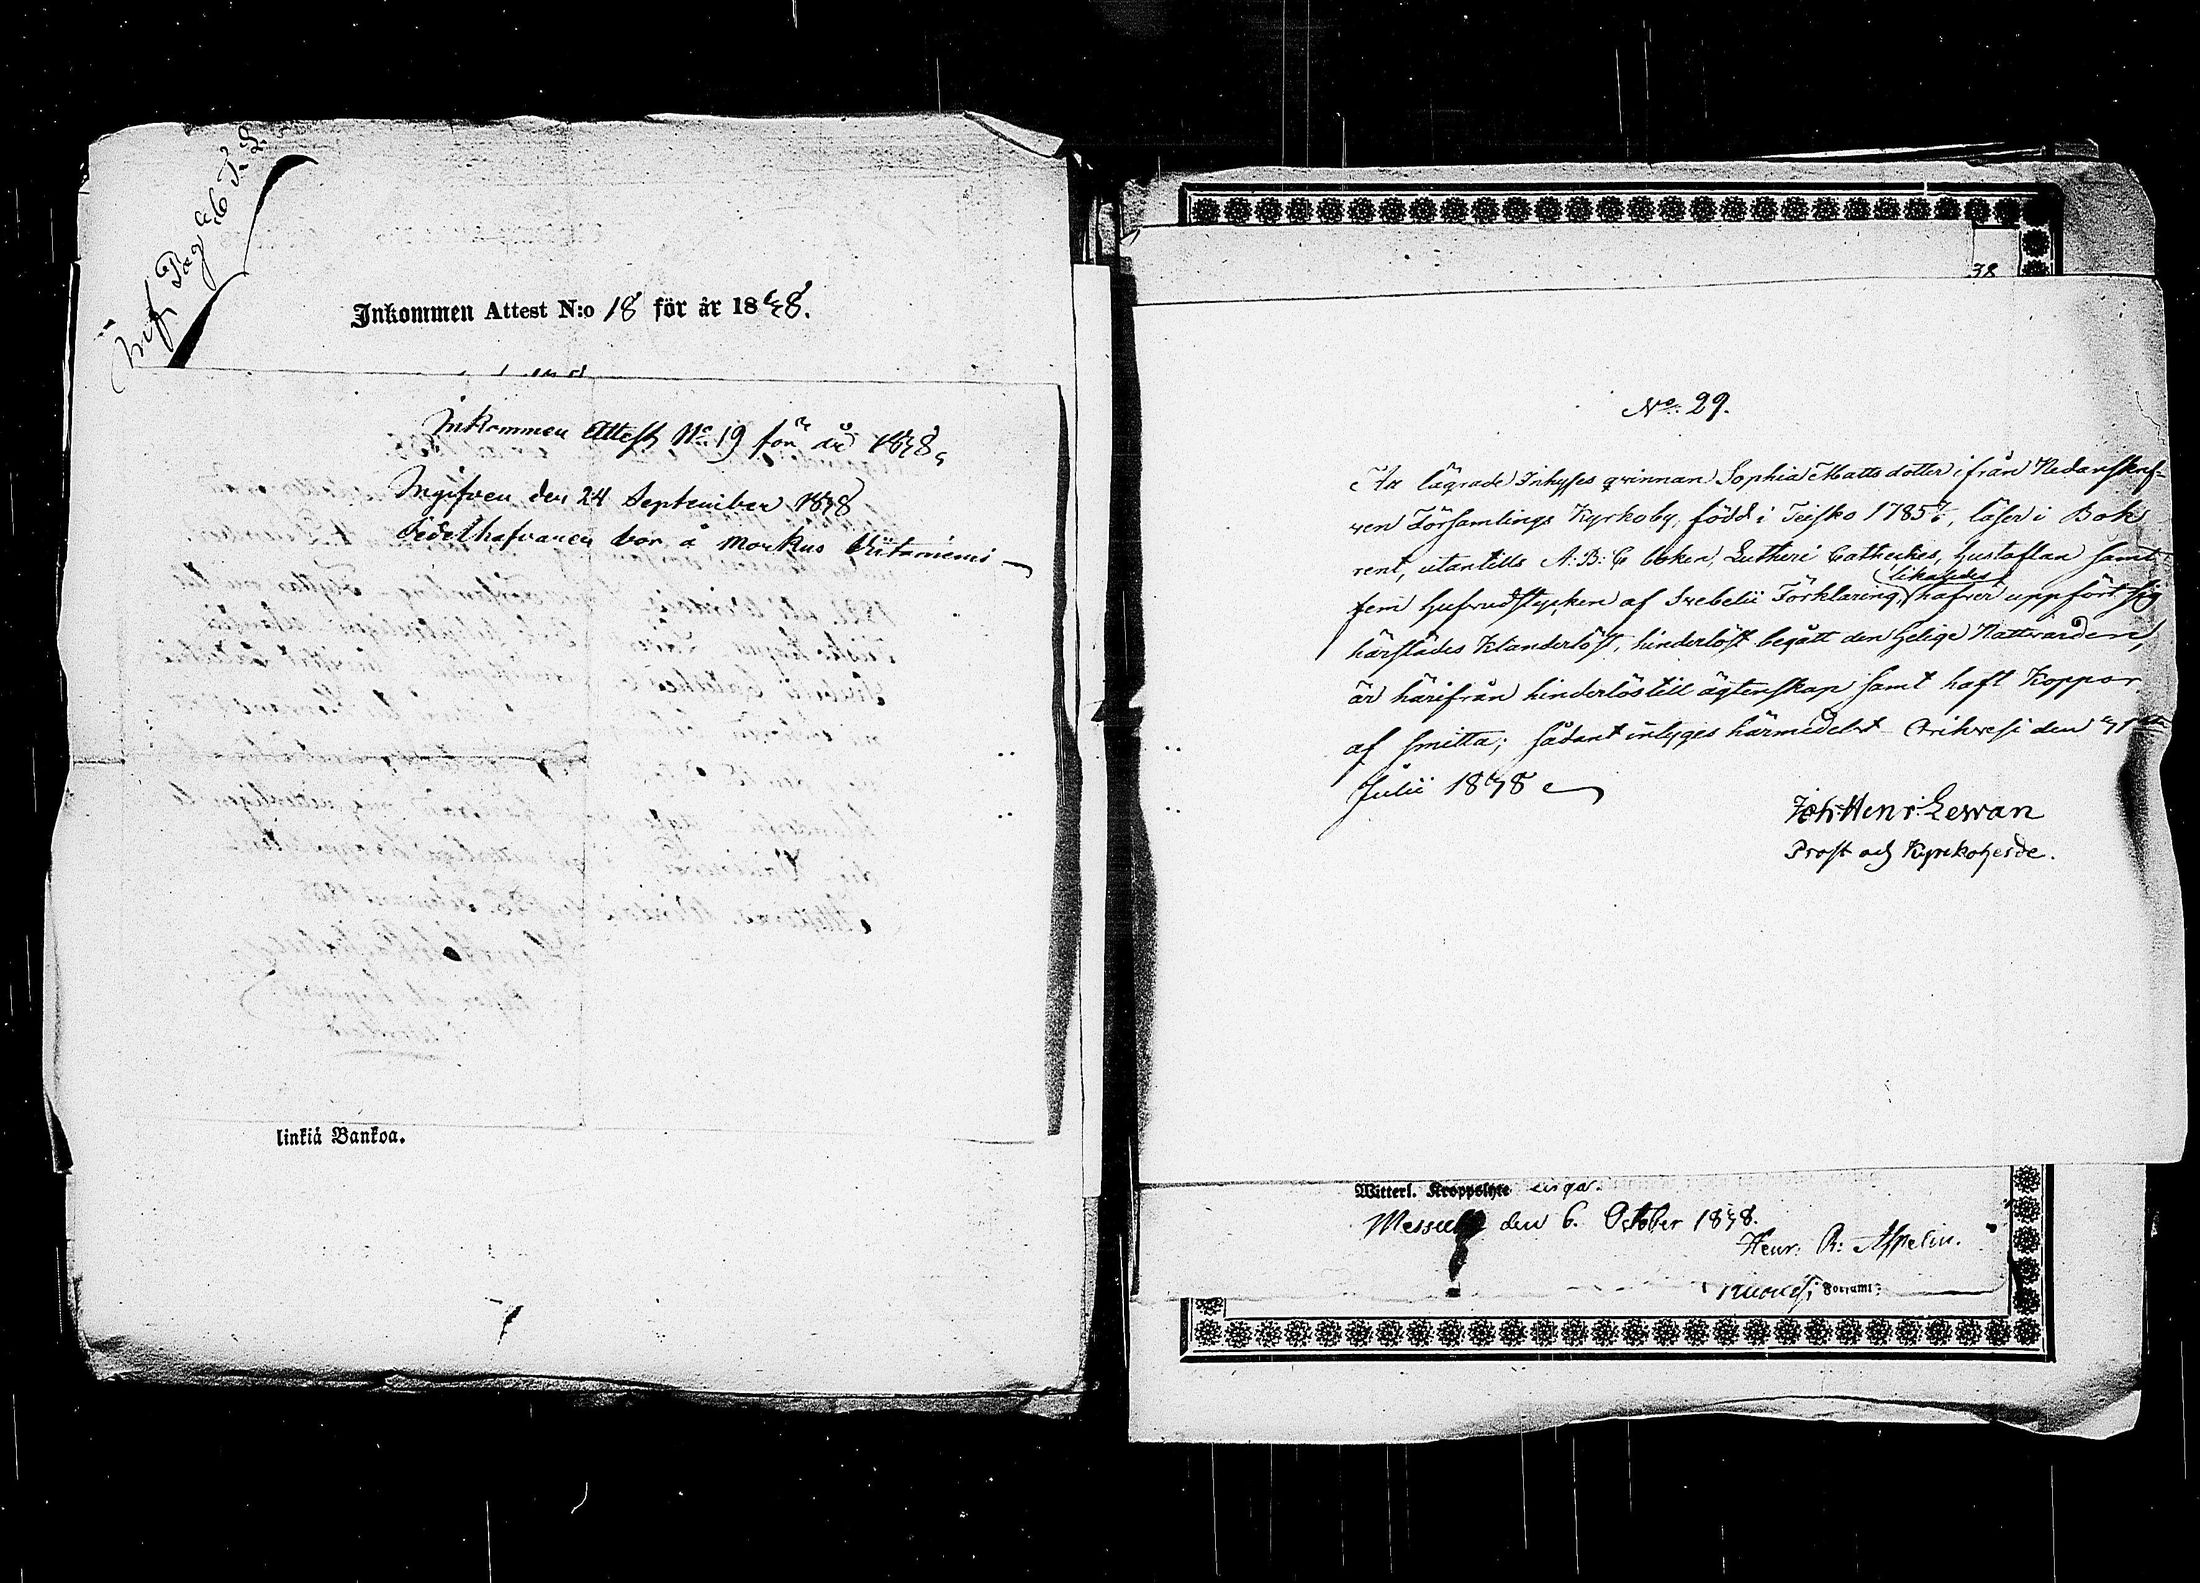 Inf. Pag
Inkommen Attest N:o 18 för år 1848.
Inkommen Attest No 19 för år 1848,
Ingifven den 24 September 1848
Sedelhafvaren bor å Markus Niitaniemi
linkiä Bankoa.
38
No. 29.
lägrade Inhyses qvinnan Sophia Matts dotter ifrån Nedanskref-
ven Församlings Kyrkoby, född i Teisko 1785, läser i Bok
rent, utantills A: B: C boken, Lutheri Catheches, Hustaflan samt
likaledes
fem hufvudstycken af Svebelii Förklaring, hafver uppfört sig
härstädes klanderlöst, hinderlöst begått den helige Nattvarden,
är härifrån hinderlös till ägtenskap samt haft Koppor
af smitta; sådant intyges härmedelst Orihvesi den
Julii 1848
Joh: Henr: Lewan
Prost och Kyrkoherde.
Witterl. Kroppslyte inga.
den 6. October 1848.
Henr: R: Aspelin.